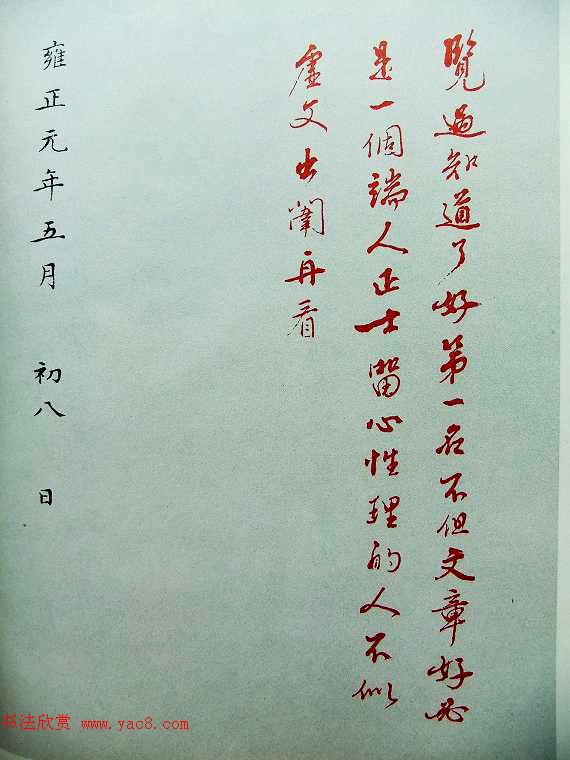 覽過知道了好第一名不但文章好必
是一個端人正士留心性理的人不似
虛文出闈再看
雍正元年五月 初八 日
书法欣赏 www.yac8.com